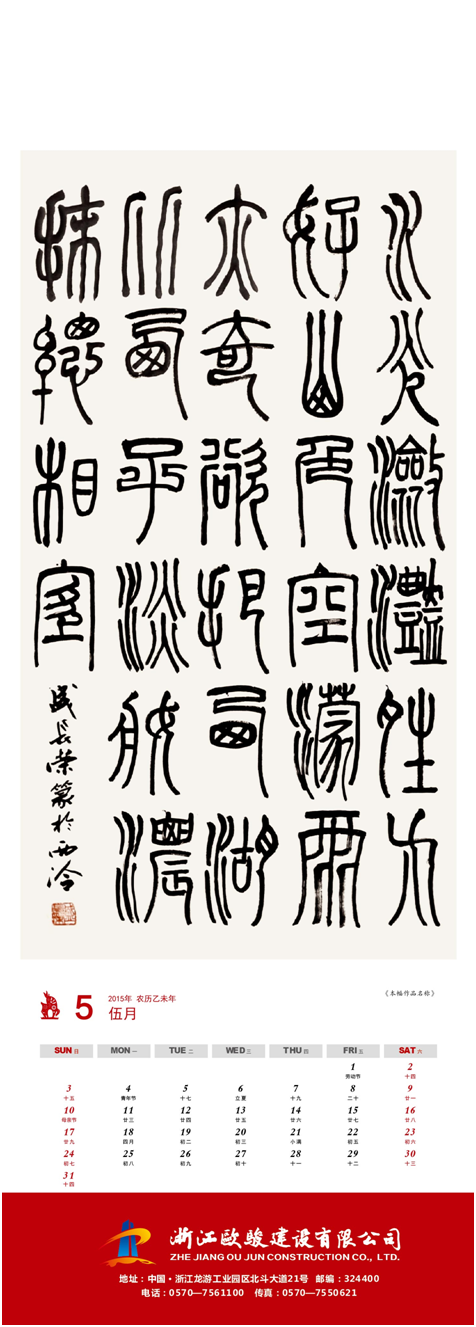 水光瀲灧晴方
好山色空濛雨
亦奇欲把西湖
比西子淡妝濃
抹總相宜
長榮篆於西泠
5
2015年 农历乙未年
伍月
《本幅作品名称》
SUN 日 MON 一 TUE 二 WED 三 THU 四 FRI 五 SAT 六
1 2
劳动节 十四
3 4 5 6 7 8 9
十五 青年节 十七 立夏 十九 二十 廿一
10 11 12 13 14 15 16
母亲节 廿三 廿四 廿五 廿六 廿七 廿八
17 18 19 20 21 22 23
廿九 四月 初二 初三 小满 初五 初六
24 25 26 27 28 29 30
初七 初八 初九 初十 十一 十二 十三
31
十四
浙江欧骏建设有限公司
ZHE JIANG OU JUN CONSTRUCTION CO., LTD.
地址：中国·浙江龙游工业园区北斗大道21号 邮编：324400
电话：0570—7561100 传真：0570—7550621